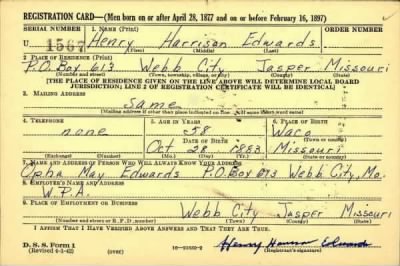 REGISTRATION CARD—(Men born on or after April 28, 1877 and on or before February 16, 1897)
SERIAL NUMBER 1. NAME (Print) ORDER NUMBER
U 1567 Henry Harrison Edwards
(First) (Middle) (Last)
2. PLACE OF RESIDENCE (Print)
P.O. Box 613 Webb City Jasper Missouri
(Number and street) (Town, township, village, or city) (County) (State)
[THE PLACE OF RESIDENCE GIVEN ON THE LINE ABOVE WILL DETERMINE LOCAL BOARD
JURISDICTION; LINE 2 OF REGISTRATION CERTIFICATE WILL BE IDENTICAL]
3. MAILING ADDRESS
Same
(Mailing address if other than place indicated on line 2. If same insert word same)
4. TELEPHONE 5. AGE IN YEARS 6. PLACE OF BIRTH
none 58 Waco
DATE OF BIRTH (Town or county)
Oct 28 1883 Missouri
(Exchange) (Number) (Mo.) (Day) (Yr.) (State or country)
7. NAME AND ADDRESS OF PERSON WHO WILL ALWAYS KNOW YOUR ADDRESS
Opha May Edwards P.O. Box 613 Webb City, Mo.
8. EMPLOYER'S NAME AND ADDRESS
W.P.A.
9. PLACE OF EMPLOYMENT OR BUSINESS
Webb City Jasper Missouri
(Number and street or R. F. D. number) (Town) (County) (State)
I AFFIRM THAT I HAVE VERIFIED ABOVE ANSWERS AND THAT THEY ARE TRUE.
D. S. S. Form 1
(Revised 4-1-42) (over) Henry Harrison Edwards
(Registrant's signature)